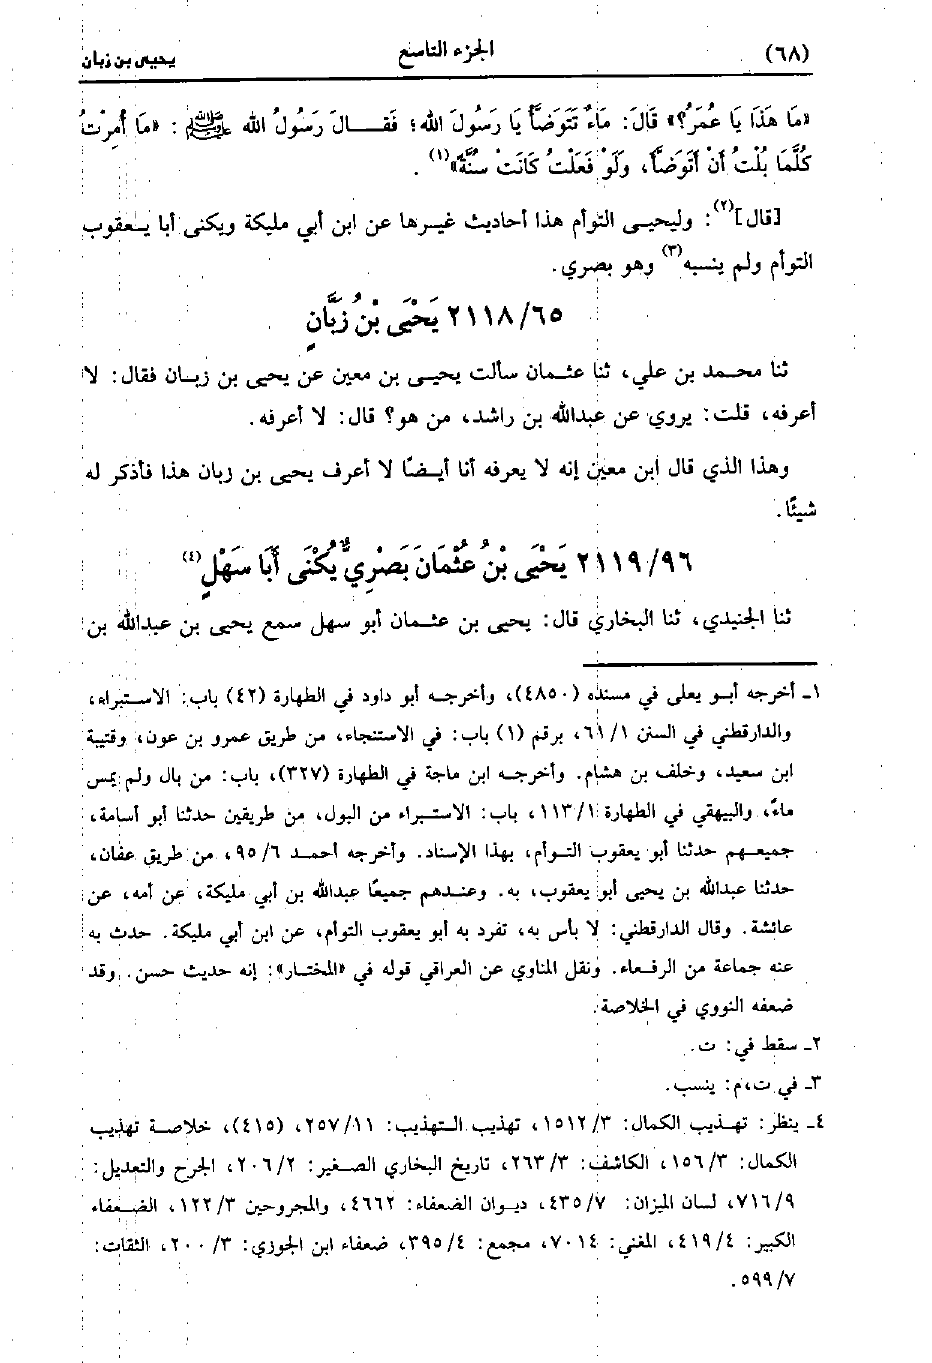 (٦٨) الجزء التاسع يحيى بن زبان
«مَا هَذَا يَا عُمَرُ؟» قَالَ: مَاءٌ تَتَوَضَّأُ يَا رَسُولَ الله؛ فَقَالَ رَسُولُ الله ﷺ: «مَا أُمِرْتُ
كُلَّمَا بُلْتُ أَنْ أَتَوَضَّأَ، وَلَوْ فَعَلْتُ كَانَتْ سُنَّةً»(١).
[قال](٢): وليحيى التوأم هذا أحاديث غيرها عن ابن أبي مليكة ويكنى أبا يعقوب
التوأم ولم ينسبه(٣) وهو بصري.
٢١١٨/٦٥ يَحْيَى بْنُ زَبَّانٍ
ثنا محمد بن علي، ثنا عثمان سألت يحيى بن معين عن يحيى بن زبان فقال: لا
أعرفه، قلت: يروي عن عبدالله بن راشد، من هو؟ قال: لا أعرفه.
وهذا الذي قال ابن معين إنه لا يعرفه أنا أيضًا لا أعرف يحيى بن زبان هذا فأذكر له
شيئًا.
٢١١٩/٩٦ يَحْيَى بْنُ عُثْمَانَ بَصْرِيٌّ يُكْنَى أَبَا سَهْلٍ(٤)
ثنا الجنيدي، ثنا البخاري قال: يحيى بن عثمان أبو سهل سمع يحيى بن عبدالله بن
١ـ أخرجه أبو يعلى في مسنده (٤٨٥٠)، وأخرجه أبو داود في الطهارة (٤٢) باب: الاستبراء،
والدارقطني في السنن ٦١/١، برقم (١) باب: في الاستنجاء، من طريق عمرو بن عون، وقتيبة
ابن سعيد، وخلف بن هشام. وأخرجه ابن ماجة في الطهارة (٣٢٧)، باب: من بال ولم يمس
ماءً، والبيهقي في الطهارة ١١٣/١، باب: الاستبراء من البول، من طريقين حدثنا أبو أسامة،
جميعهم حدثنا أبو يعقوب التوأم، بهذا الإسناد. وأخرجه أحمد ٩٥/٦، من طريق عفان،
حدثنا عبدالله بن يحيى أبو يعقوب، به. وعندهم جميعًا عبدالله بن أبي مليكة، عن أمه، عن
عائشة. وقال الدارقطني: لا بأس به، تفرد به أبو يعقوب التوأم، عن ابن أبي مليكة. حدث به
عنه جماعة من الرفعاء. ونقل المناوي عن العراقي قوله في «المختار»: إنه حديث حسن. وقد
ضعفه النووي في الخلاصة.
٢ـ سقط في: ت.
٣ـ في ت،م: ينسب.
٤ـ ينظر: تهذيب الكمال: ١٥١٢/٣، تهذيب التهذيب: ٢٥٧/١١، (٤١٥)، خلاصة تهذيب
الكمال: ١٥٦/٣، الكاشف: ٢٦٣/٣، تاريخ البخاري الصغير: ٢٠٦/٢، الجرح والتعديل:
٧١٦/٩، لسان الميزان: ٤٣٥/٧، ديوان الضعفاء: ٤٦٦٢، والمجروحين ١٢٢/٣، الضعفاء
الكبير: ٤١٩/٤، المغني: ٧٠١٤، مجمع: ٣٩٥/٤، ضعفاء ابن الجوزي: ٢٠٠/٣، الثقات:
٥٩٩/٧.